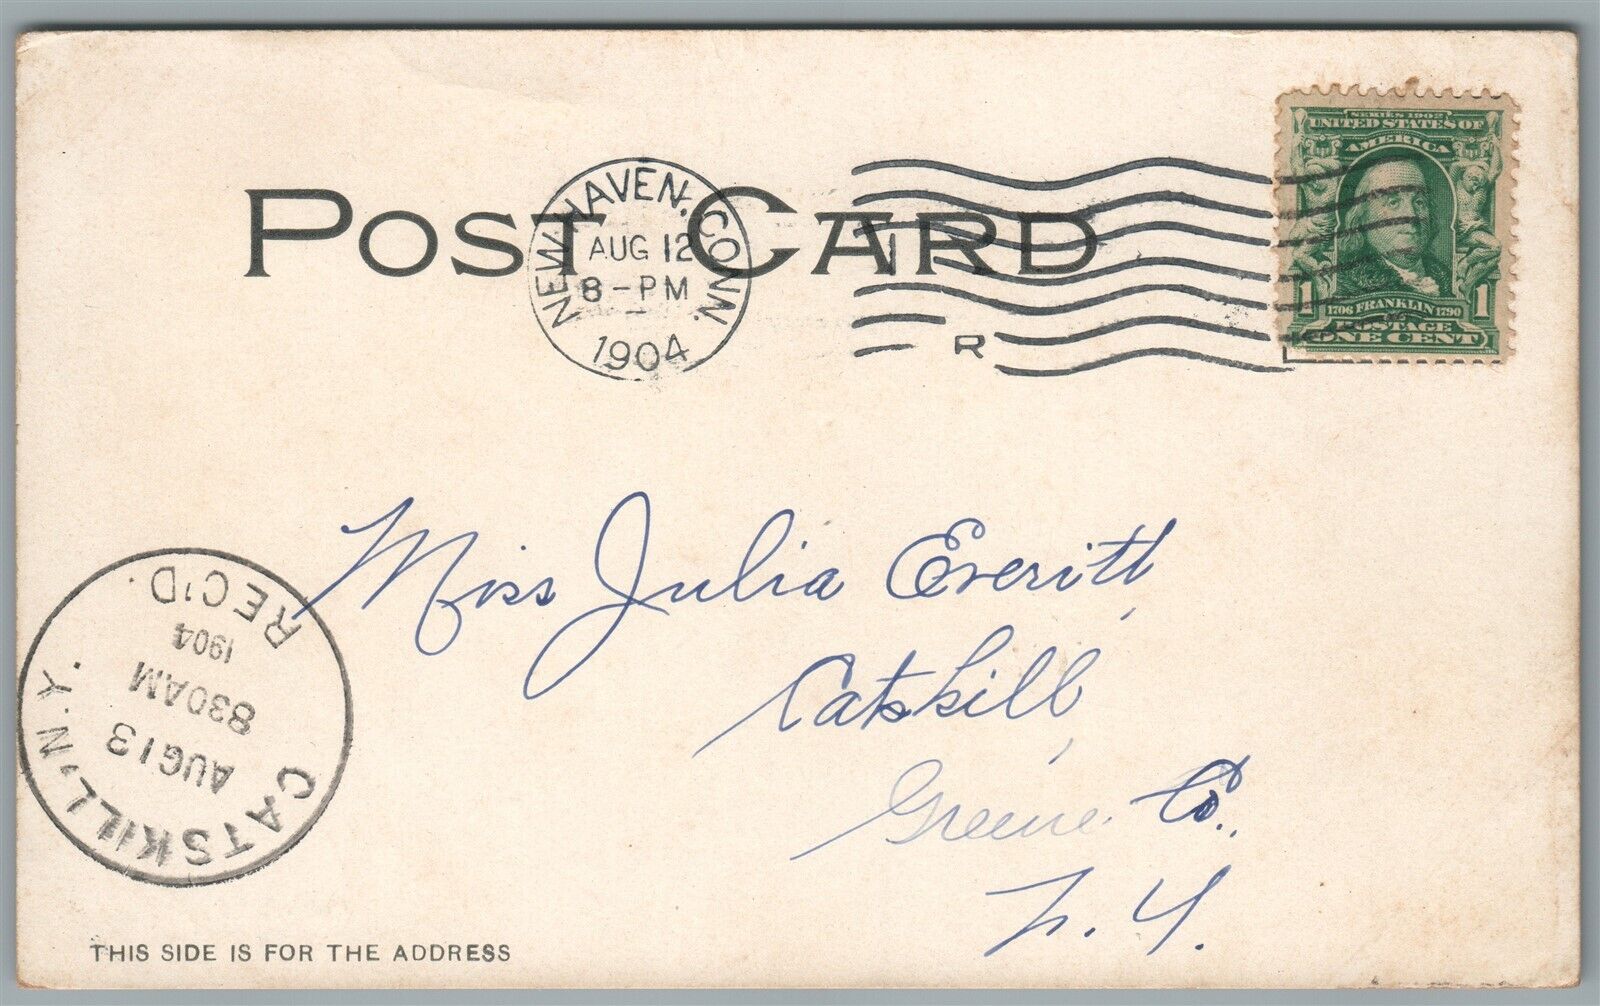 POST CARD
NEW HAVEN, CONN.
AUG 12
8-PM
1904
R
SERIES 1902
UNITED STATES OF
AMERICA
1706 FRANKLIN 1790
1 POSTAGE 1
ONE CENT
Miss Julia Everitt,
Catskill,
Greene Co.,
N. Y.
CATSKILL, N.Y.
AUG 13
830AM
1904
REC'D.
THIS SIDE IS FOR THE ADDRESS